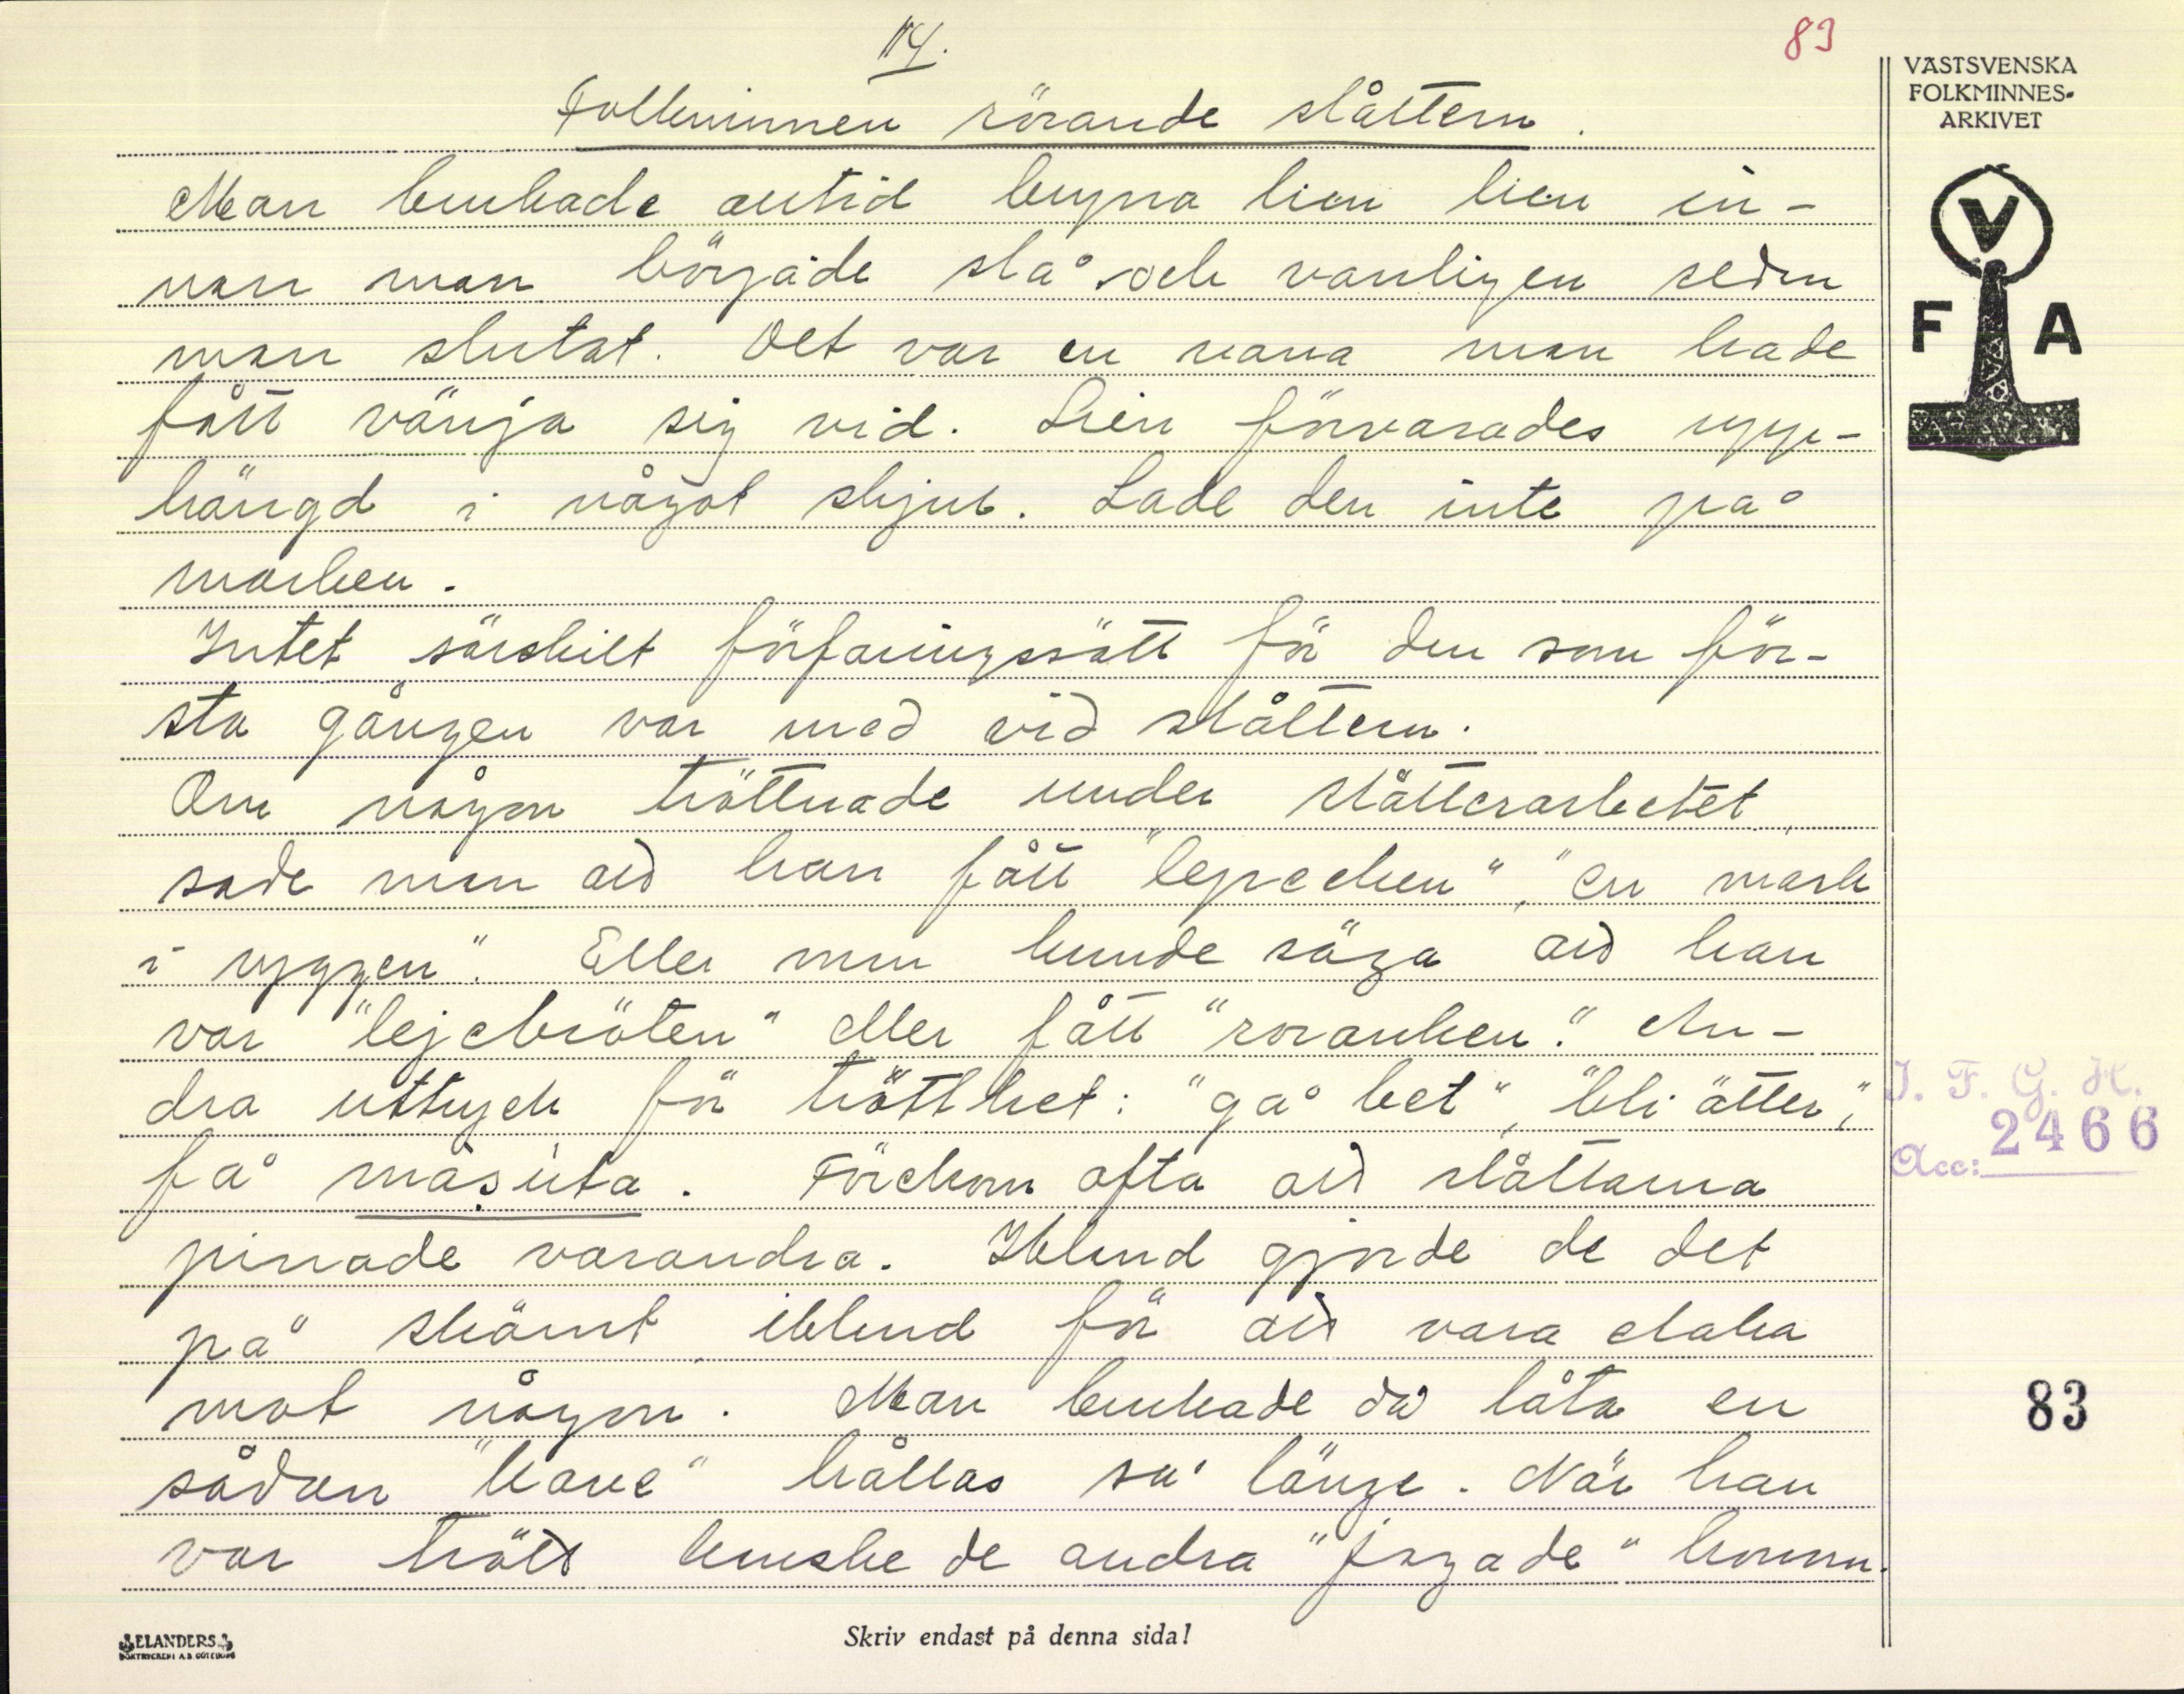 14.
83
Folkminnen rörande slåttern.
Man brukade alltid bryna lien lien in-
nan man började slå och vanligen sedan
man slutat. Det var en vana man hade
fått vänja sig vid. Lien förvarades upp-
hängd i något skjul. Lade den inte på
marken.
Intet särskilt förfaringssätt för den som för-
sta gången var med vid slåttern.
Om någon tröttnade under slåtterarbetet,
sade man att han fått "lepecken", "en mark
i ryggen". Eller man kunde säga att han
var "lejebröten" eller fått "roranken". An-
dra uttryck för trötthet: "gå bet", "bli ätter",
få måsuta. Förekom ofta att slåttarna
pinade varandra. Ibland gjorde de det
på skämt, ibland för att vara elaka
mot någon. Man brukade då låta en
sådan "kare" hållas så länge. När han
var trött kanske de andra "jagade" honom.
VÄSTSVENSKA
FOLKMINNES-
ARKIVET
V
F A
I. F. G. H.
Acc: 2466
83
ELANDERS
BOKTRYCKERI A.B. GÖTEBORG
Skriv endast på denna sida!